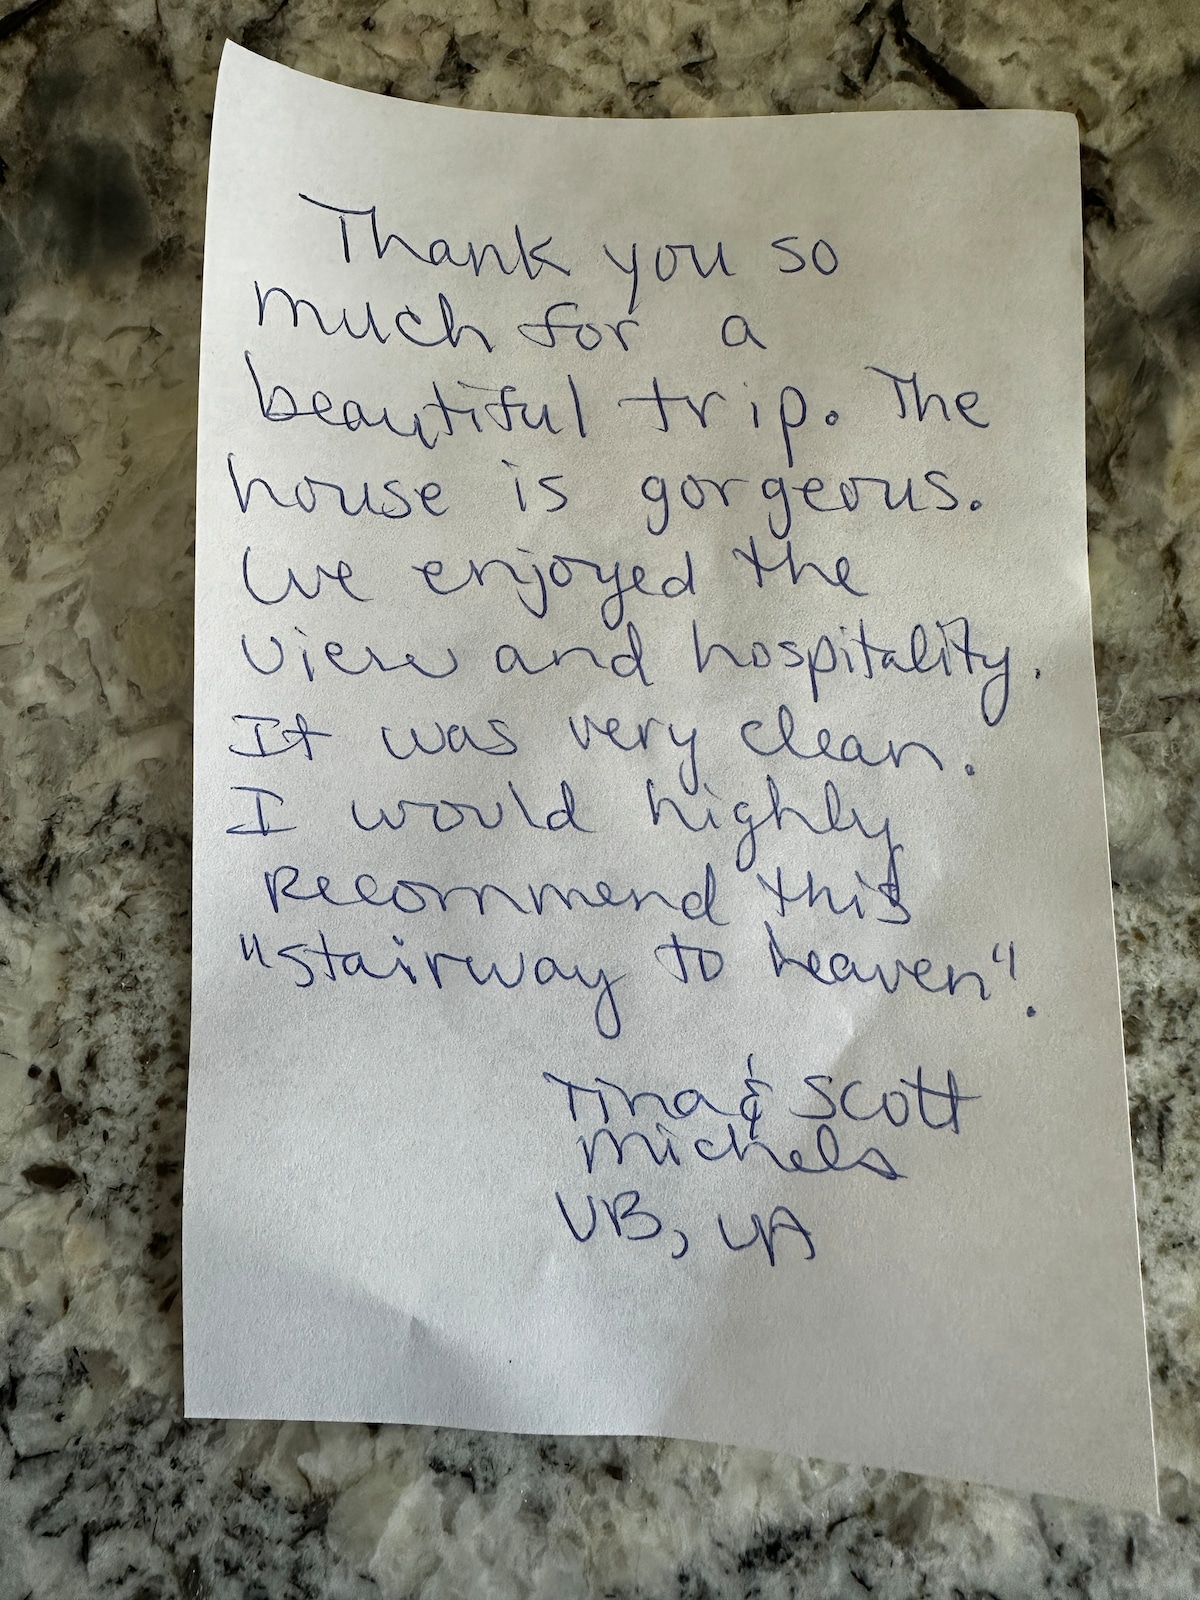 Thank you so
much for a
beautiful trip. The
house is gorgeous.
We enjoyed the
view and hospitality.
It was very clean.
I would highly
Recommend this
"stairway to heaven".
Tina & Scott
Michels
VB, VA